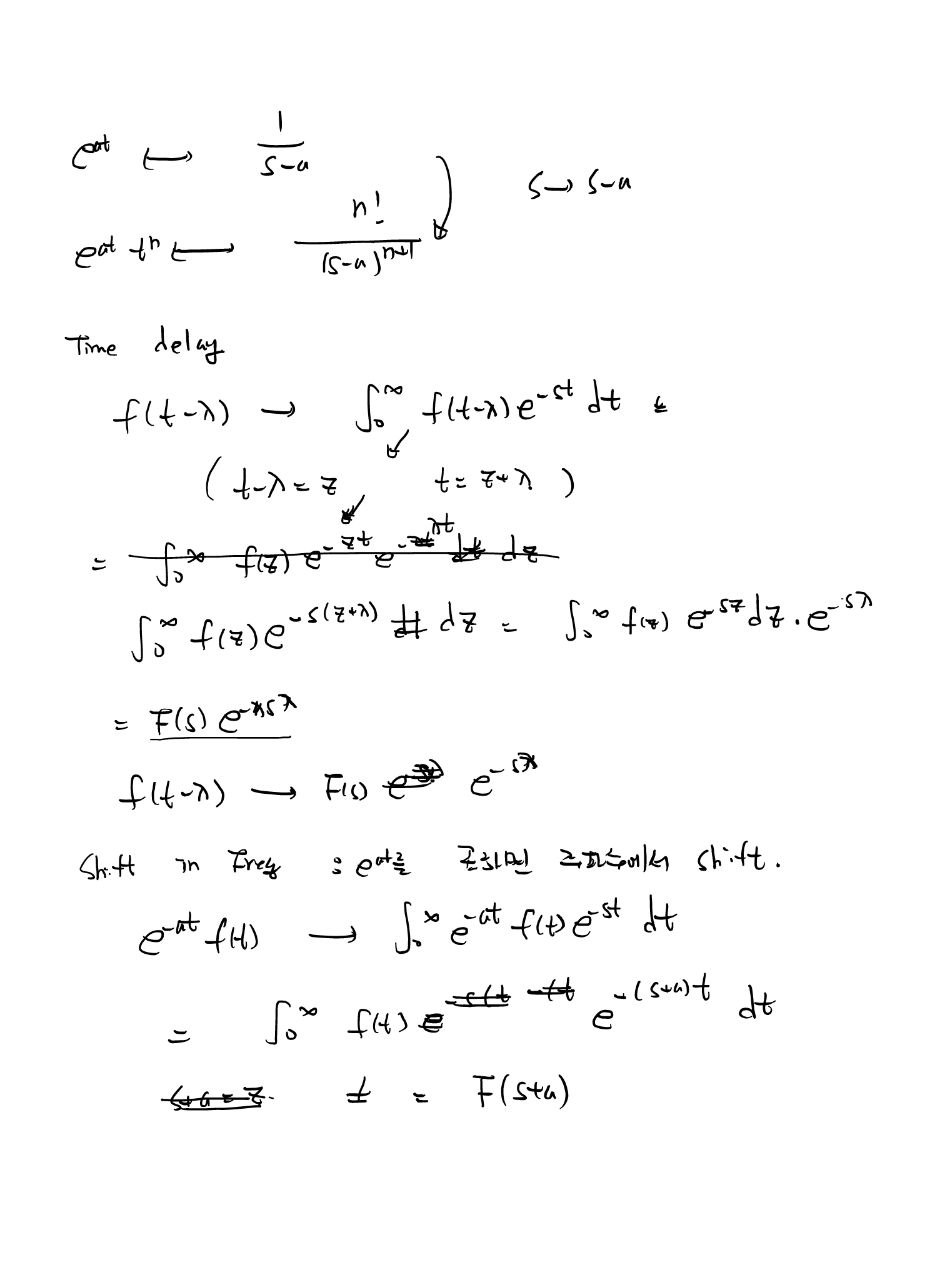 e^{at} ⟷ \frac{1}{s-a}
s → s-a
e^{at} t^n ⟷ \frac{n!}{(s-a)^{n+1}}
Time delay
f(t-λ) → ∫_0^∞ f(t-λ) e^{-st} dt
( t-λ = z t = z+λ )
= ∫_0^∞ f(z) e^{-zt} e^{-λt} dt dz
∫_0^∞ f(z) e^{-s(z+λ)} dt dz = ∫_0^∞ f(z) e^{-sz} dz · e^{-sλ}
= F(s) e^{-sλ}
f(t-λ) → F(s) e^{-sλ}
Shift in Freq : e^{at}를 곱하면 주파수에서 shift.
e^{-at} f(t) → ∫_0^∞ e^{-at} f(t) e^{-st} dt
= ∫_0^∞ f(t) e^{-(s+a)t} dt
s+a = z. = F(s+a)